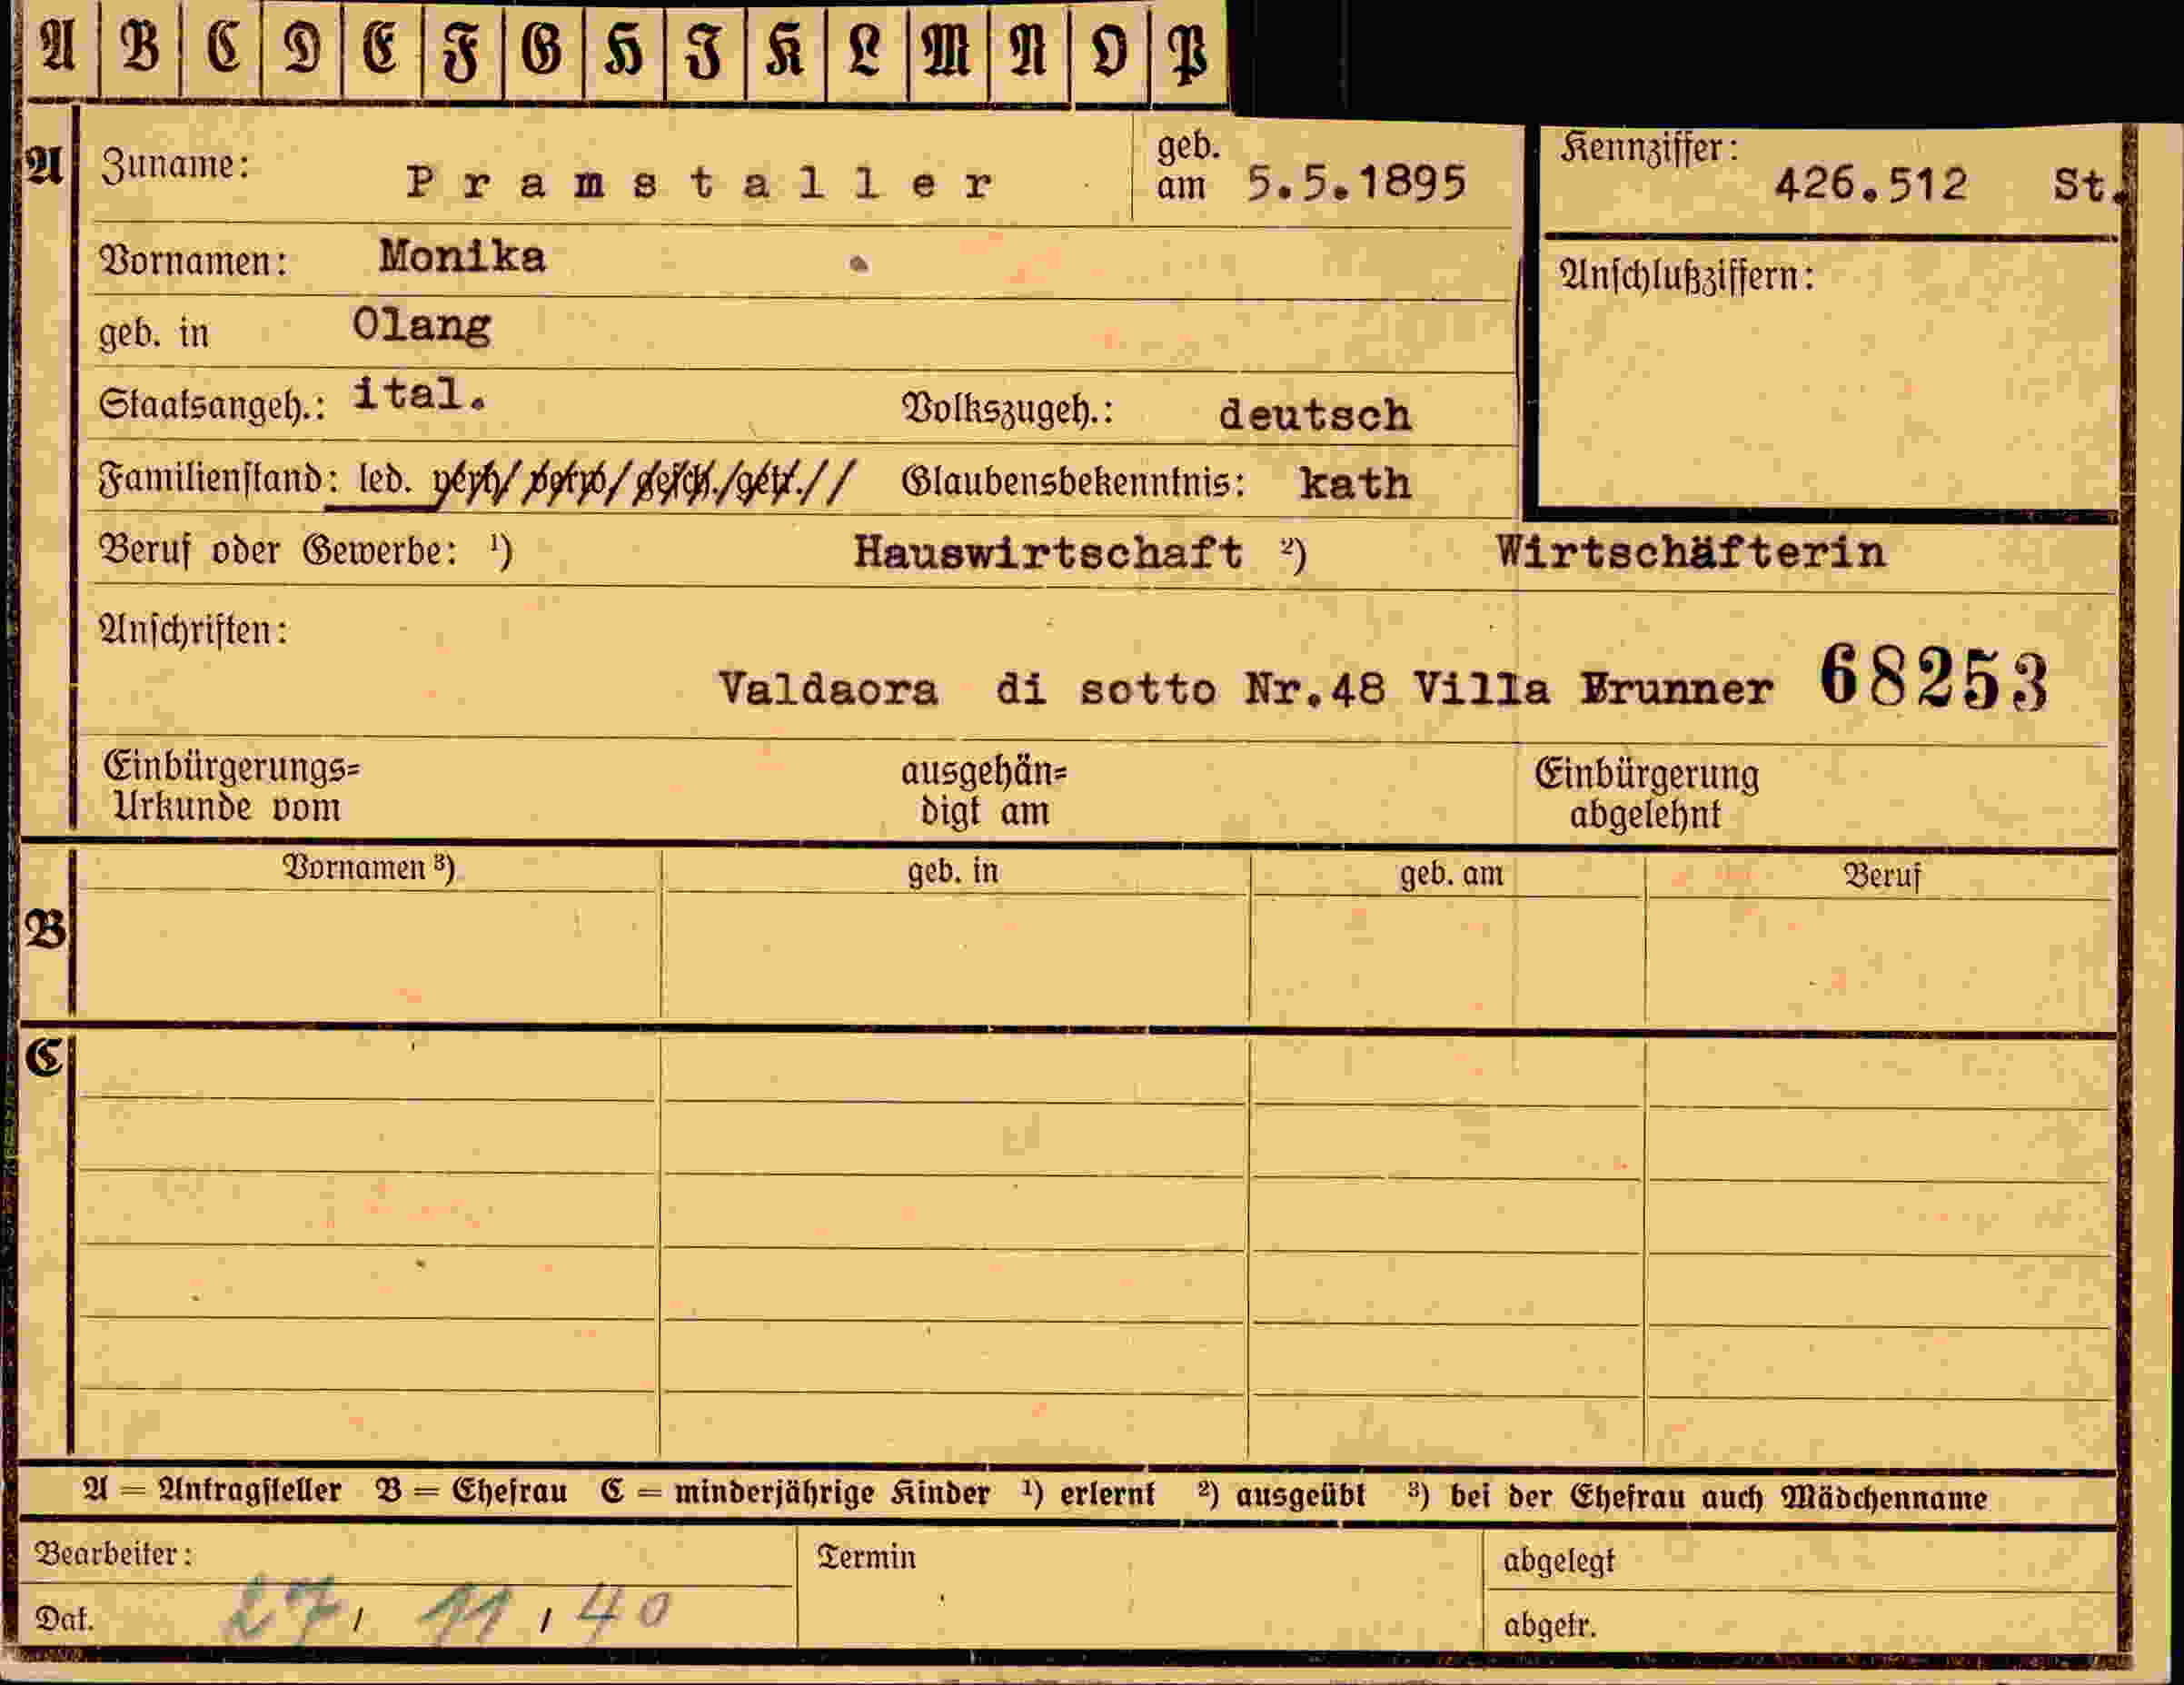 A B C D E F G H I K L M N O P
A Zuname: Pramstaller geb. am 5.5.1895 Kennziffer: 426.512 St.
Vornamen: Monika Anschlußziffern:
geb. in Olang
Staatsangeh.: ital. Volkszugeh.: deutsch
Familienstand: led. verh/ verw/ gesch./getr.// Glaubensbekenntnis: kath
Beruf oder Gewerbe: ¹) Hauswirtschaft ²) Wirtschäfterin
Anschriften:
Valdaora di sotto Nr.48 Villa Brunner 68253
Einbürgerungs= ausgehän= Einbürgerung
Urkunde vom digt am abgelehnt
Vornamen ³) geb. in geb. am Beruf
B
C
A = Antragsteller B = Ehefrau C = minderjährige Kinder ¹) erlernt ²) ausgeübt ³) bei der Ehefrau auch Mädchenname
Bearbeiter: Termin abgelegt
Dat. 27, 11, 40 abgetr.